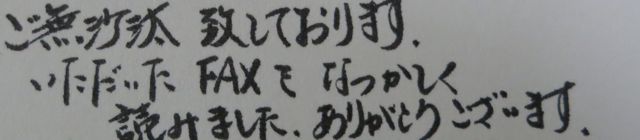 ご無沙汰 致しております.
いただいた FAXを なつかしく
読みました. ありがとうございます.